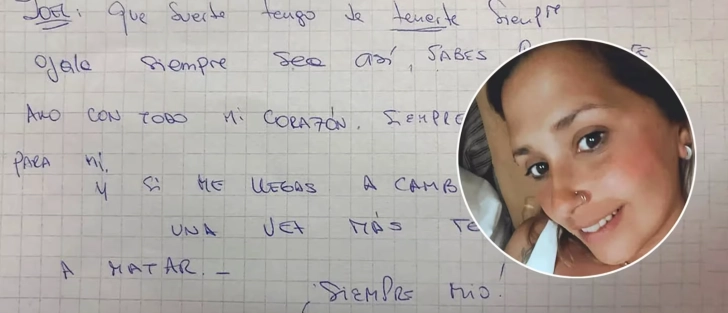 JOEL: QUE SUERTE TENGO DE TENERTE SIEMPRE
OJALA SIEMPRE SEA ASÍ, SABES
AMO CON TODO MI CORAZÓN. SIEMPRE
PARA MÍ.
Y SI ME LLEGAS A CAMB
UNA VEZ MÁS TE
A MATAR. _
¡SIEMPRE MIO!